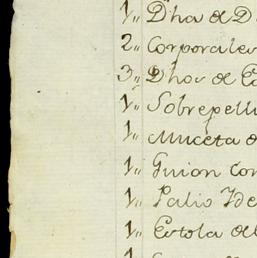 1,, Dha de D
2,, Corporales
3,, Dhos de Co
1,, Sobrepelli
1,, Muceta d
1,, Guion con
1,, Palio Yde
1,, Estola de
1,,